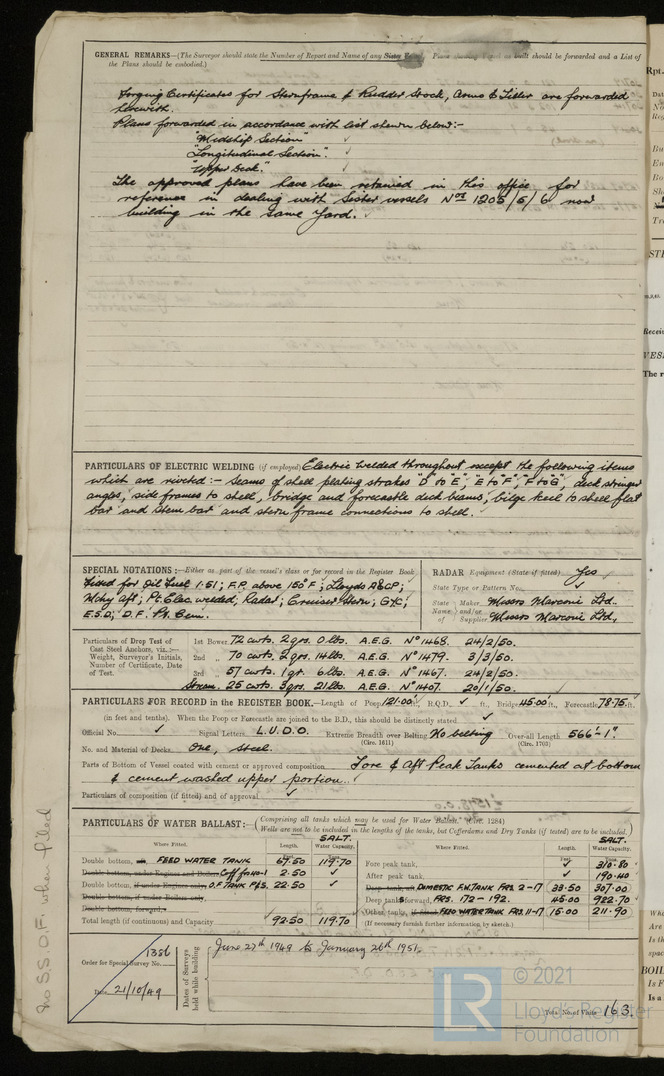 GENERAL REMARKS—(The Surveyor should state the Number of Report and Name of any Sister Plans should be forwarded and a List of
the Plans should be embodied.)
Forging Certificates for Sternframe & Rudder Stock, Arms & Tiller are forwarded
herewith.
Plans forwarded in accordance with list shewn below:-
"Midship Section" ✓
"Longitudinal Section". ✓
"Upper Deck." ✓
The approved plans have been retained in this office for
reference in dealing with Sister vessels Nos 1205/5/6 now
building in the same Yard.
PARTICULARS OF ELECTRIC WELDING (if employed) Electric welded throughout except the following items
which are riveted:- Seams of shell plating strakes "D to E", "E to F", "F to G", deck stringer
angles, side frames to shell, bridge and forecastle deck beams, bilge keel to shell flat
bar and stem bar and stern frame connections to shell.
SPECIAL NOTATIONS:—Either as part of the vessel's class or for record in the Register Book
Fitted for Oil Fuel 1.51; F.P. above 150°F; Lloyds A&CP;
Mchy aft; Pt. Elec. welded, Radar; Cruiser Stern; GyC;
E.S.D; D.F. Pt. Cem.
RADAR Equipment (State if fitted) Yes
State Type or Pattern No. ✓
State Maker Messrs Marconi Ltd.
Name and/or
of Supplier Messrs Marconi Ltd.
Particulars of Drop Test of
Cast Steel Anchors, viz.:—
Weight, Surveyor's Initials,
Number of Certificate, Date
of Test.
1st Bower 72 cwts. 2 qrs. 0 lbs. A.E.G. No 1468. 24/2/50.
2nd " 70 cwts. 2 qrs. 14 lbs. A.E.G. No 1479. 3/3/50.
3rd " 57 cwts. 1 qr. 6 lbs. A.E.G. No 1467. 24/2/50.
Stream. 25 cwts. 3 qrs. 21 lbs. A.E.G. No 1407. 20/1/50.
PARTICULARS FOR RECORD in the REGISTER BOOK.—Length of Poop 121.00 ft., R.Q.D. ✓ ft., Bridge 45.00 ft., Forecastle 78.75 ft.
(in feet and tenths). When the Poop or Forecastle are joined to the B.D., this should be distinctly stated ✓
Official No. ✓ Signal Letters L.U.D.O. Extreme Breadth over Belting No belting Over-all Length 566'-1".
(Circ. 1611) (Circ. 1703)
No. and Material of Decks One, steel.
Parts of Bottom of Vessel coated with cement or approved composition Fore & Aft Peak Tanks cemented at bottom
& cement washed upper portion.
Particulars of composition (if fitted) and of approval ✓
PARTICULARS OF WATER BALLAST:—(Comprising all tanks which may be used for Water Ballast. (Circ. 1284)
Wells are not to be included in the lengths of the tanks, but Cofferdams and Dry Tanks (if tested) are to be included.)
SALT. SALT.
Where Fitted. Length. Water Capacity. Where Fitted. Length. Water Capacity.
Double bottom, FEED WATER TANK 67.50 119.70
Double bottom, under Engines and Boilers Coff for No 1 2.50 ✓
Double bottom, if under Engines only, O.F. TANK P&S. 22.50 ✓
Double bottom, if under Boilers only,
Double bottom, forward,
Total length (continuous) and Capacity 92.50 119.70
Fore peak tank, ✓ 310.80
After peak tank, ✓ 190.40
Deep tank, aft, DOMESTIC F.W. TANK FRS. 2-17 33.50 307.00
Deep tanks forward, FRS. 172-192. 45.00 922.70
Other tanks, if fitted FEED WATER TANK FRS. 11-17 15.00 211.90
(If necessary furnish further information by sketch.)
Order for Special Survey No. 1356
Date 21/10/49
Dates of Surveys
held while building
June 27th 1949 to January 26th 1951.
Total No. of Visits 163.
No S.S.O.F. when filed
© 2021
LR Lloyd's Register
Foundation